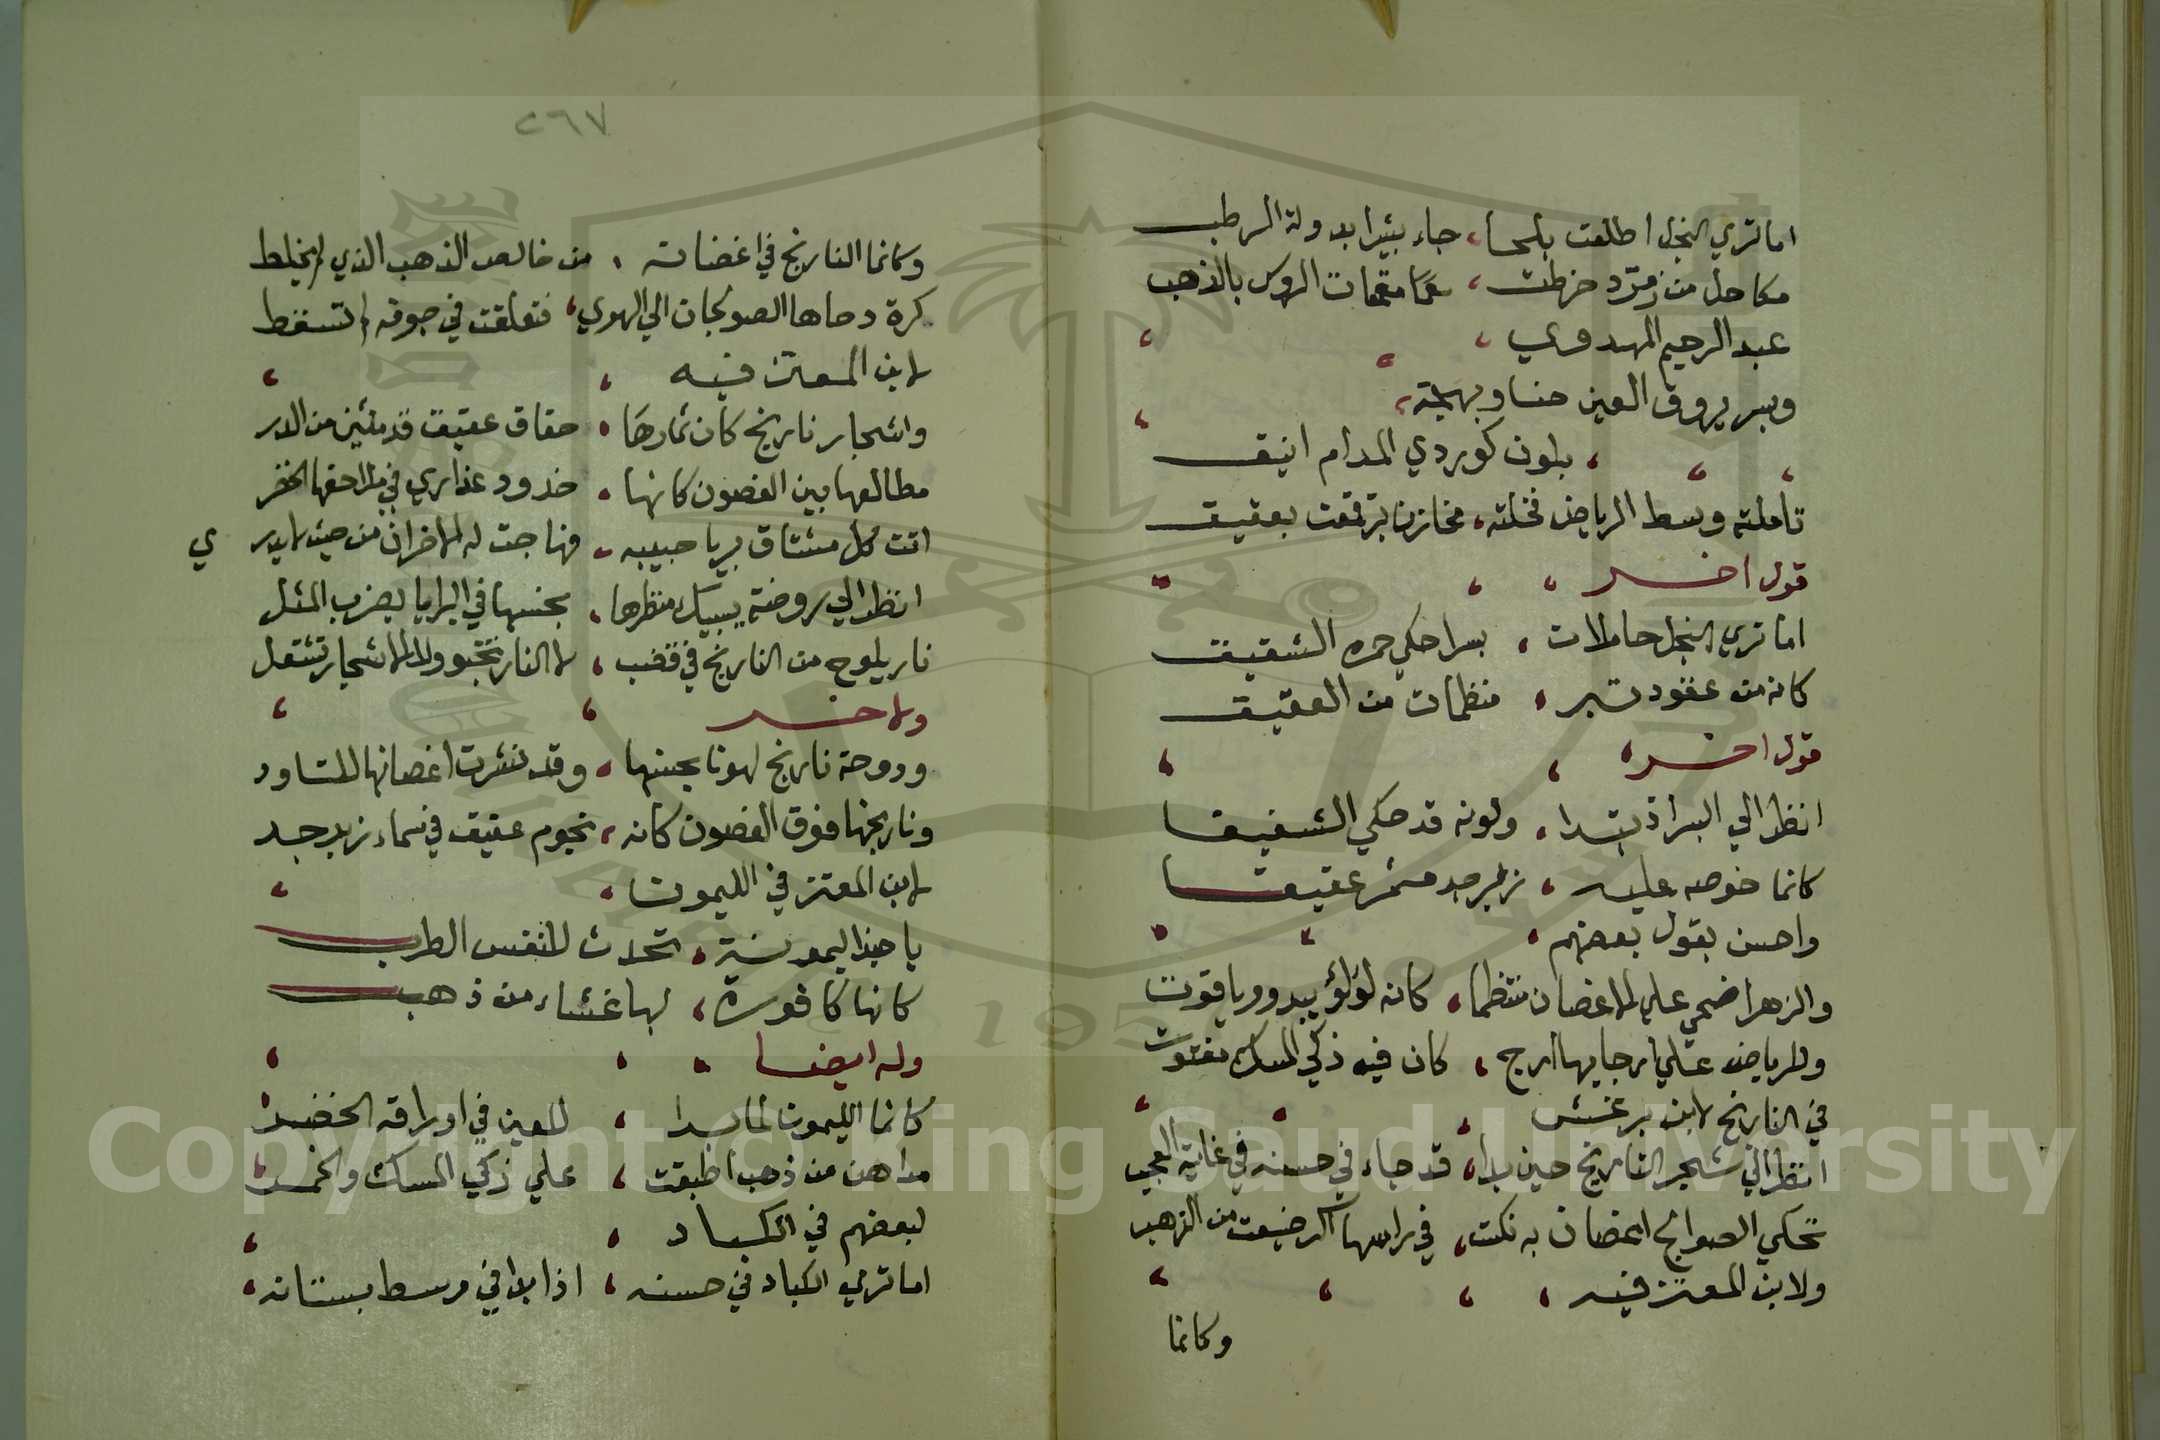 اما تري النخل اطلعت بلحا، جاء بشيرا بدولة الرطب
مكاحل من زمرّد خرطت، مقمعات الروس بالذهب
عبد الرحيم المهدوي
وبسر يروق العين حسنا وبهجة،
بلون كوردي المدام انيق
تاملته وسط الرياض فخلته، مخازن برقعت بعقيق
قول اخر
اما تري النخل حاملات، بسرا حكي حمره الشقيق
كانه من عقود تبر، منظمات من العقيق
قول اخر
انظر الي البسر اذ تبدا، ولونه قد حكي الشقيقا
كانما خوصه عليه، زبرجد مثمر عقيقا
واحسن بقول بعضهم،
والزهر اضحي علي الاغصان منتظما، كانه لؤلؤ يبدو وياقوت
وللرياض علي ارجايها ارج، كان فيه ذكي المسك مفتوت
في النارنج لابن برغش
انظر الي شجر النارنج حين بدا، قد جاء في حسنه في غاية العجب
تحكي الصوالج اغصان به نكت، في راسها اكر ضيعت من الذهب
ولابن المعتز فيه
وكانما
٢٦٧
وكانما النارنج في اغصانه، من خالص الذهب الذي لم يخلط
كرة دحاها الصولجان الي الهوي، فتعلقت في جوفه لم تسقط
لابن المعتز فيه
واشجار نارنج كان ثمارها، حقاق عقيق قد ملئن من الدر
مطالعها بين الغصون كانها، خدود عذاري في ملاحفها الخضر
اتت كل مشتاق بريا حبيبه، فهاجت له الاحزان من حيث لا يدري
انظر الي روضة يسبيك منظرها، بحسنها في البرايا يضرب المثل
نار يلوح من النارنج في قضب، لا النار تخبو ولا الاشجار تشتعل
ولاخر
ودوحة نارنج لهونا بحسنها، وقد نشرت اغصانها للتاود
ونارنجها فوق الغصون كانه، نجوم عقيق في سماء زبرجد
لابن المعتز في الليمون،
يا حبذا ليمونة، تحدث للنفس الطرب
كانها كافورة، لها غشاء من ذهب
وله ايضا
كانما الليمون لما بدا، للعين في اوراقه الخضر
مداهن من ذهب اطبقت، علي زكي المسك والخمر
لبعضهم في الكباد
اما تري الكباد في حسنه، اذا بدا في وسط بستانه،
Copyright © King Saud University
195